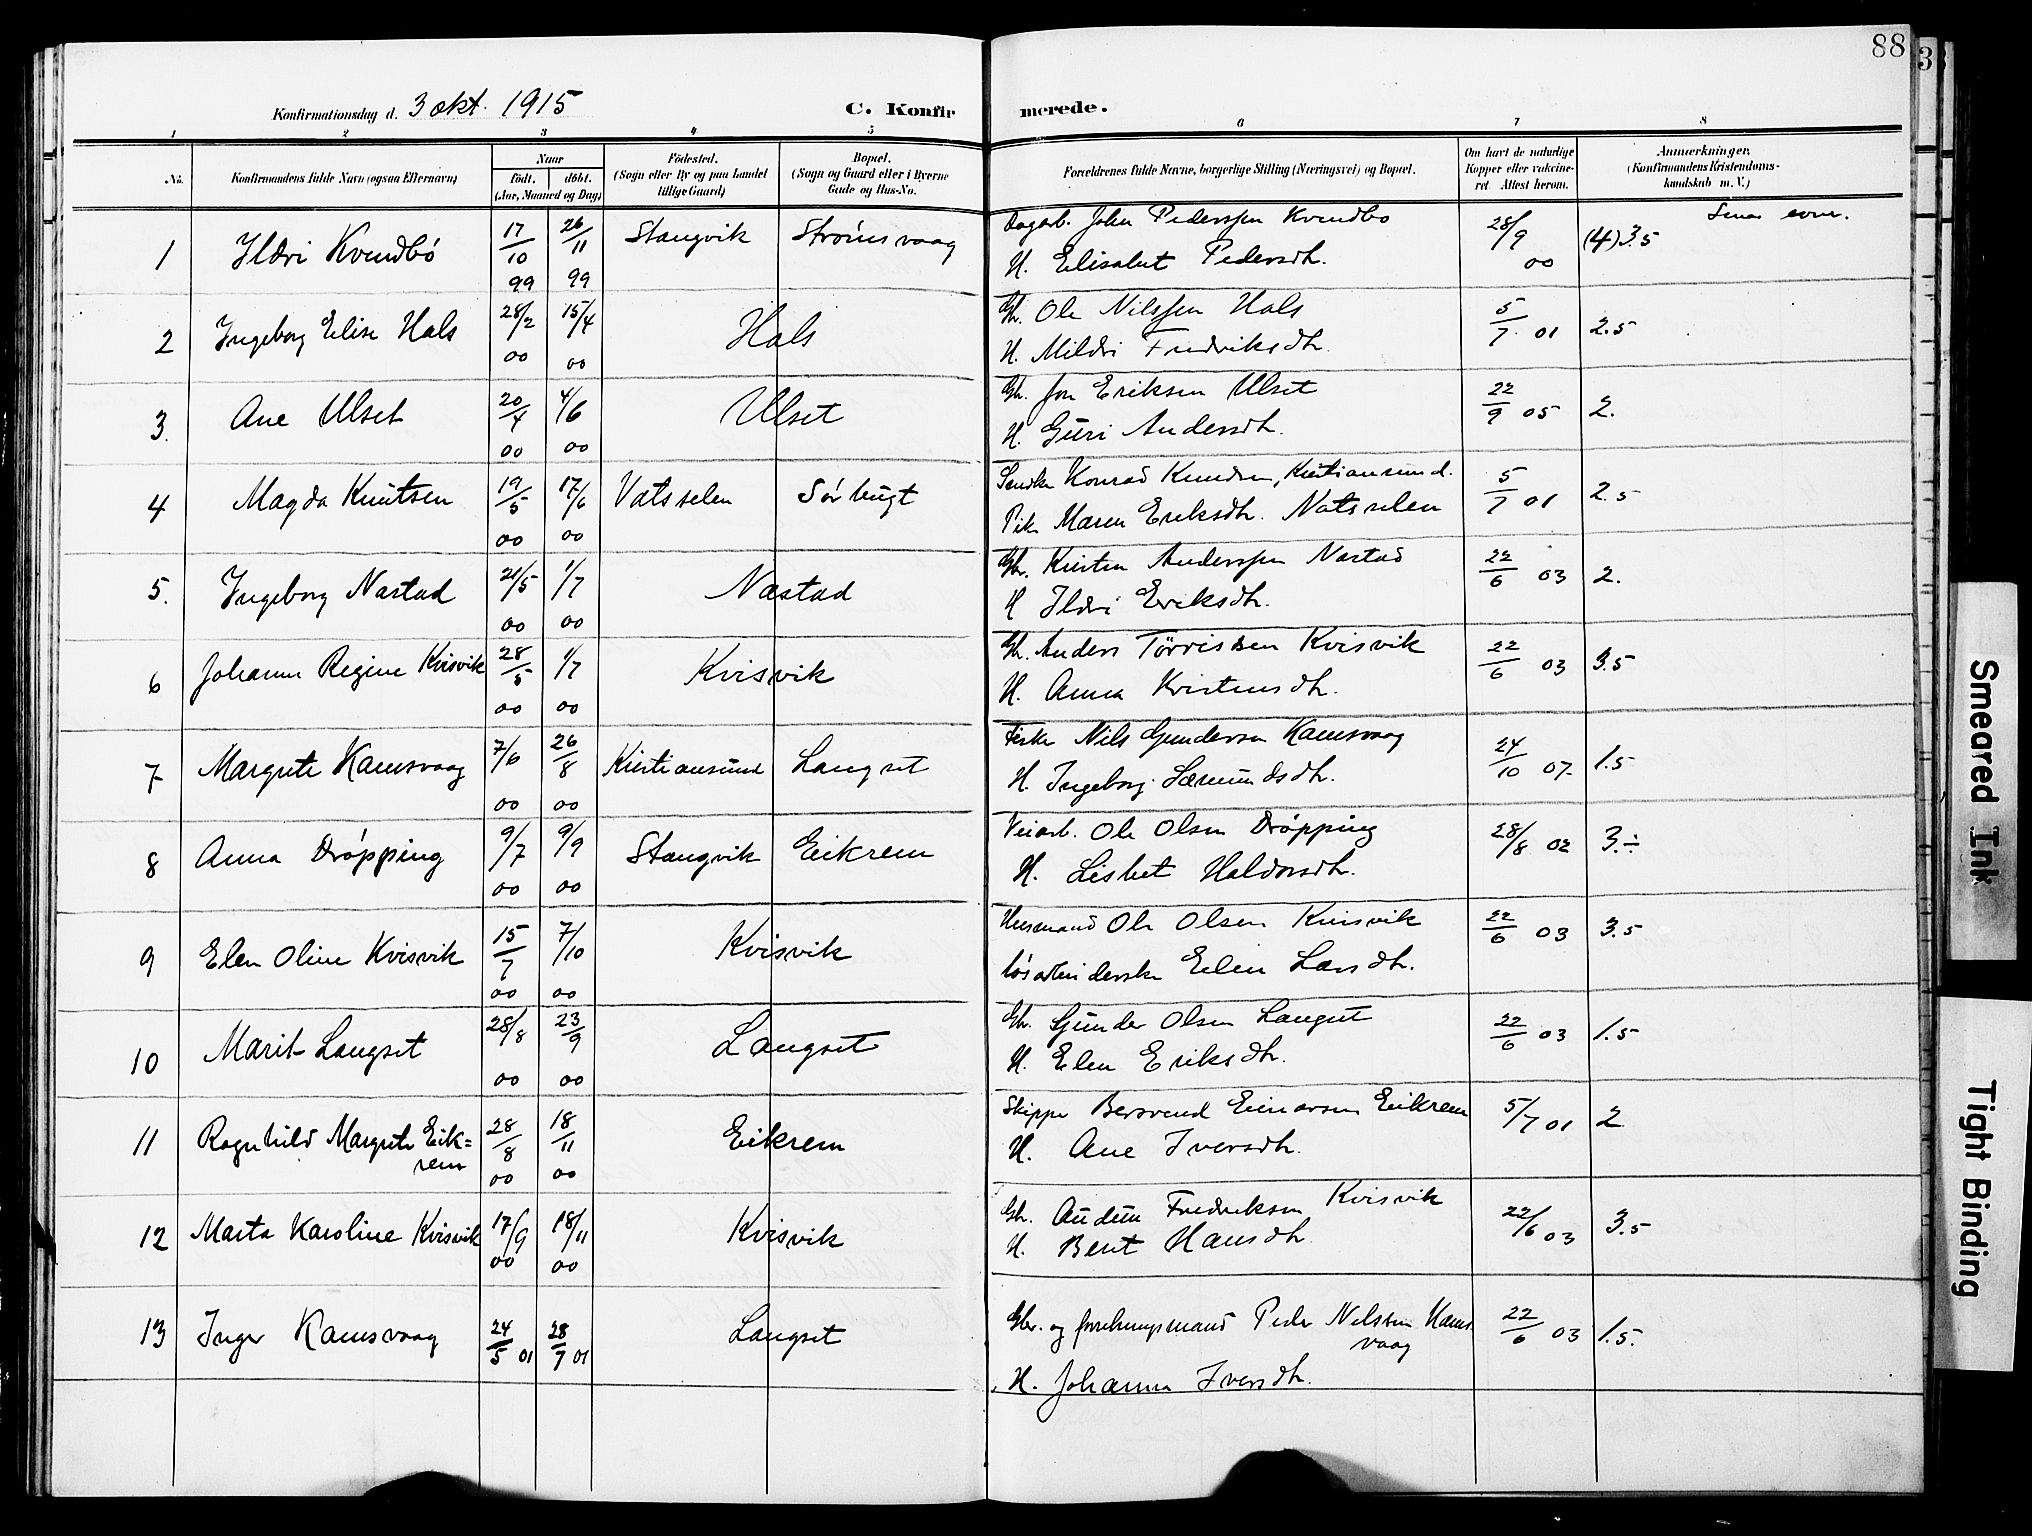 88
3
Konfirmationsdag d. 3 okt. 1915
C. Konfirmerede.
1 2 3 4 5 6 7 8
No.
Konfirmandens fulde Navn (ogsaa Efternavn)
Naar
født. døbt.
(Aar, Maaned og Dag)
Fødested.
(Sogn eller By og paa Landet
tillige Gaard)
Bopæl.
(Sogn og Gaard eller i Byerne
Gade og Hus-No.
Forældrenes fulde Navne, borgerlige Stilling (Næringsvei) og Bopæl.
Om havt de naturlige
Kopper eller vakcine-
ret Attest herom.
Anmærkninger.
(Konfirmandens Kristendoms-
kundskab m. V.)
1 Ildri Kvendbö 17/10 99 26/11 99 Stangvik Strömsvaag Dagarb. John Pederssen Kvendbö 28/9 00 (4) 3.5 evner.
H. Elisabet Pedersdtr.
2 Ingeborg Elise Hals 28/2 00 15/4 00 Hals Gbr. Ole Nilssen Hals 5/7 01 2.5
H. Mildri Fredriksdtr.
3. Ane Ulset 20/4 00 4/6 00 Ulset Gbr. Jon Eriksen Ulset 22/9 05 2.
H. Guri Andersdtr.
4 Magda Knutsen 19/5 00 17/6 00 Vatsselen Sörbugt Konrad Knudsen, Kristiansund. 5/7 01 2.5
Pike Maren Eriksdtr. Vatsselen
5. Ingeborg Nastad 21/5 00 1/7 00 Nastad Gbr. Kristen Anderssen Nastad 22/6 03 2.
H Ildri Eriksdtr.
6 Johanne Regine Kvisvik 28/5 00 1/7 00 Kvisvik Gbr. Anders Törrissen Kvisvik 22/6 03 3.5
H. Anna Kristensdtr.
7 Margrete Kamsvaag 7/6 00 26/8 00 Kristiansund Langset Fisker Nils Gundersen Kamsvaag 24/10 07. 1.5
H. Ingeborg Sæmundsdtr.
8 Anna Dröpping 9/7 00 9/9 00 Stangvik Eikrem Veiarb. Ole Olsen Dröpping 28/8 02 3.÷
H. Lisbet Haldorsdtr.
9 Elen Oline Kvisvik 15/7 00 7/10 00 Kvisvik Husmand Ole Olsen Kvisvik 22/6 03 3.5
lösarbeiderske Elen Larsdtr.
10 Marit Langset 28/8 00 23/9 00 Langset Gbr. Gunder Olsen Langset 22/6 03 1.5
H. Elen Eriksdtr.
11 Ragnhild Margrete Eik= 28/8 00 18/11 00 Eikrem Skipper Bersvend Einarsen Eikrem 5/7 01 2
rem H. Ane Iversdtr.
12 Marta Karoline Kvisvik 17/9 00 18/11 00 Kvisvik Gbr. Audun Fredriksen Kvisvik 22/6 03 3.5
H. Berit Hansdtr.
13 Inger Kamsvaag 24/5 01 28/7 01 Langset Gbr. og forretningsmand Peder Nilssen Kams 22/6 03 1.5.
vaag
H. Johanna Iversdtr.
Smeared Ink
Tight Binding